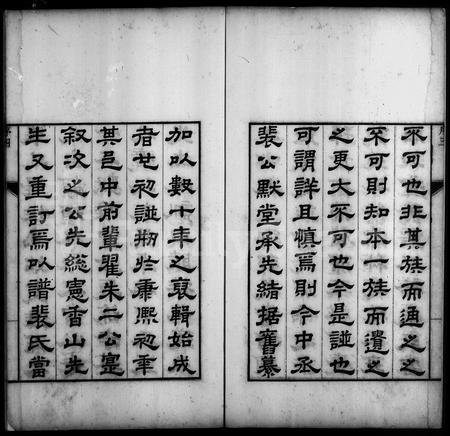 不可也非其族而通之之
不可則知本一族而遺之
之更大不可也今是諩也
可謂詳且慎焉則今中丞
裴公默堂承先緒据舊纂
加以數十年之裒輯始成
者也初諩刱於康熙初年
其邑中前輩翟朱二公寔
叙次之公先總憲香山先
生又重訂焉以譜裴氏當